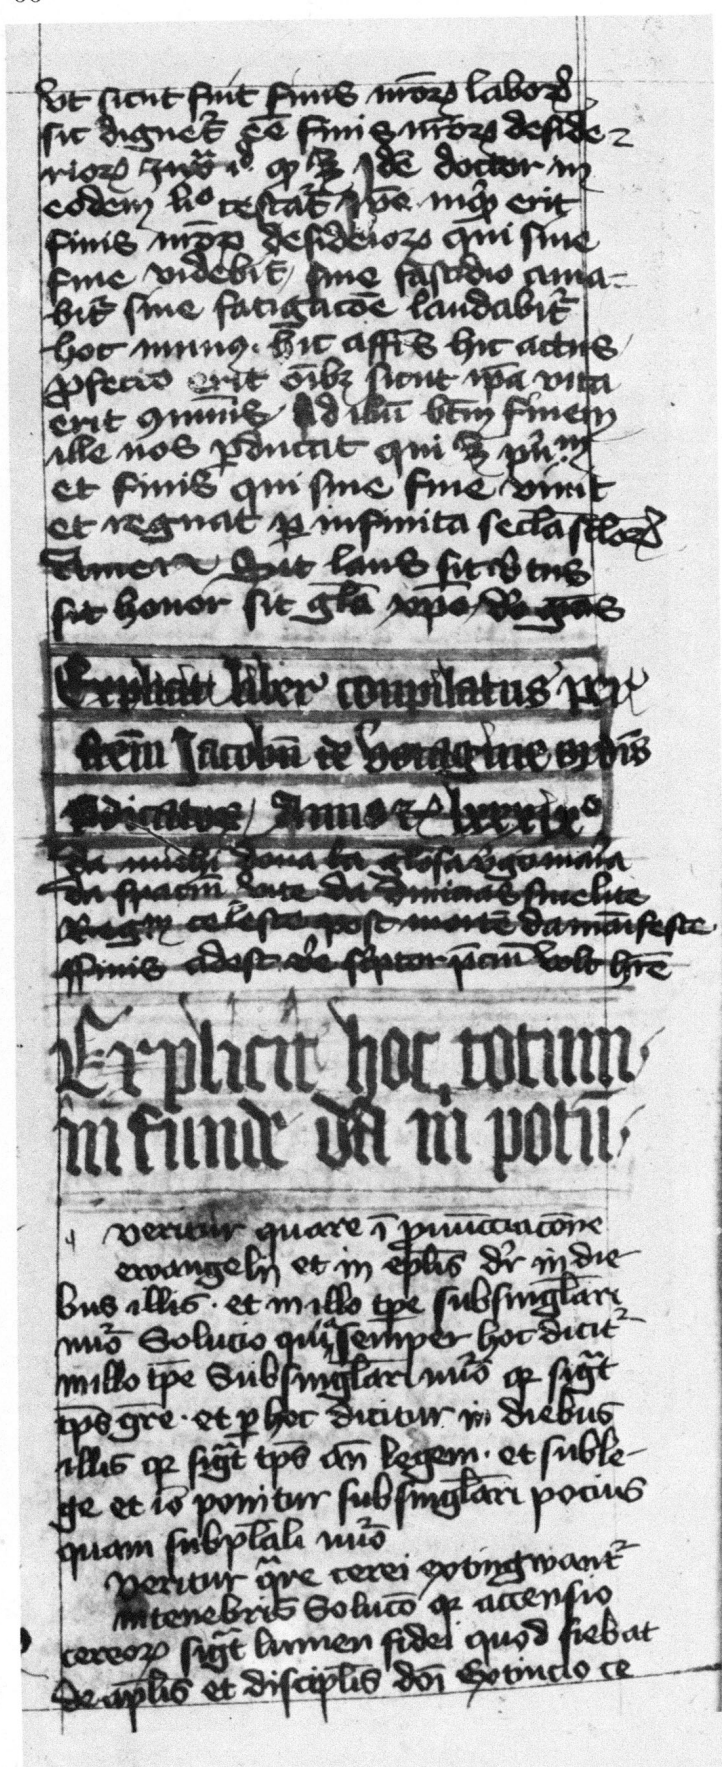 vt sicut fuit finis nr̄orꝫ laborꝫ
sic dignet᷑ eē finis nr̄orꝫ deside
riorꝫ idē doctor in
eodem liº testat᷑ ip̄e inqͥ erit
finis nr̄orꝫ desideriorꝫ qui sine
fine videbit᷑ sine fastidio ama
bit᷑ sine fatigacōe laudabit᷑
hoc munꝰ. hic affcūs hic actus
ꝓfecto erit oībꝫ sicut ip̄a vita
erit ꝯmūis Ad illū btm̄ finem
ille nos ꝑducat qui
et finis qui sine fine viuit
et regnat ꝑ infinita secl̄a scl̄orꝫ
Amen Sit laus sit v̓tus
sit honor sit gl̄a xp̄e
Explicit liber conpilatus per
frēm Jacobū de Voragine ordīs
p̄dicatorꝫ Anno ꝛc̄ lxxxixº
da michi dona la glosa v̓go maria
da spaciū vite da diuicias sine lite
Regnū celeste post mortē da manifeste
ffinis adest v̓e sc̓ptor p̄ciū volt hr̄e
Explicit hoc totum
infunde da m̄ potū
veritur quare ī ꝓnūcciacōne
ewangelij et in ep̄lis dr̄ in die
bus illis. et in illo tp̄e sub singl̄ari
nūo Solucio quia semper hoc dicit᷑
in illo tp̄e Sub singl̄ari nūo qꝛ sigͣt
tp̄s gr̄e. et ꝑ hoc dicitur in diebus
illis qꝛ sigͣt tp̄s an̄ legem. et sub le
ge et iō ponitur sub singl̄ari pocius
quam sub pl̄ali nūo
veritur qͣre cerei extingwant᷑
in tenebris Solucō qꝛ accensio
cereorꝫ sigͣt lumen fidei quod fiebat
de ap̄lis et discipl̄is dn̄i Extinctio ce